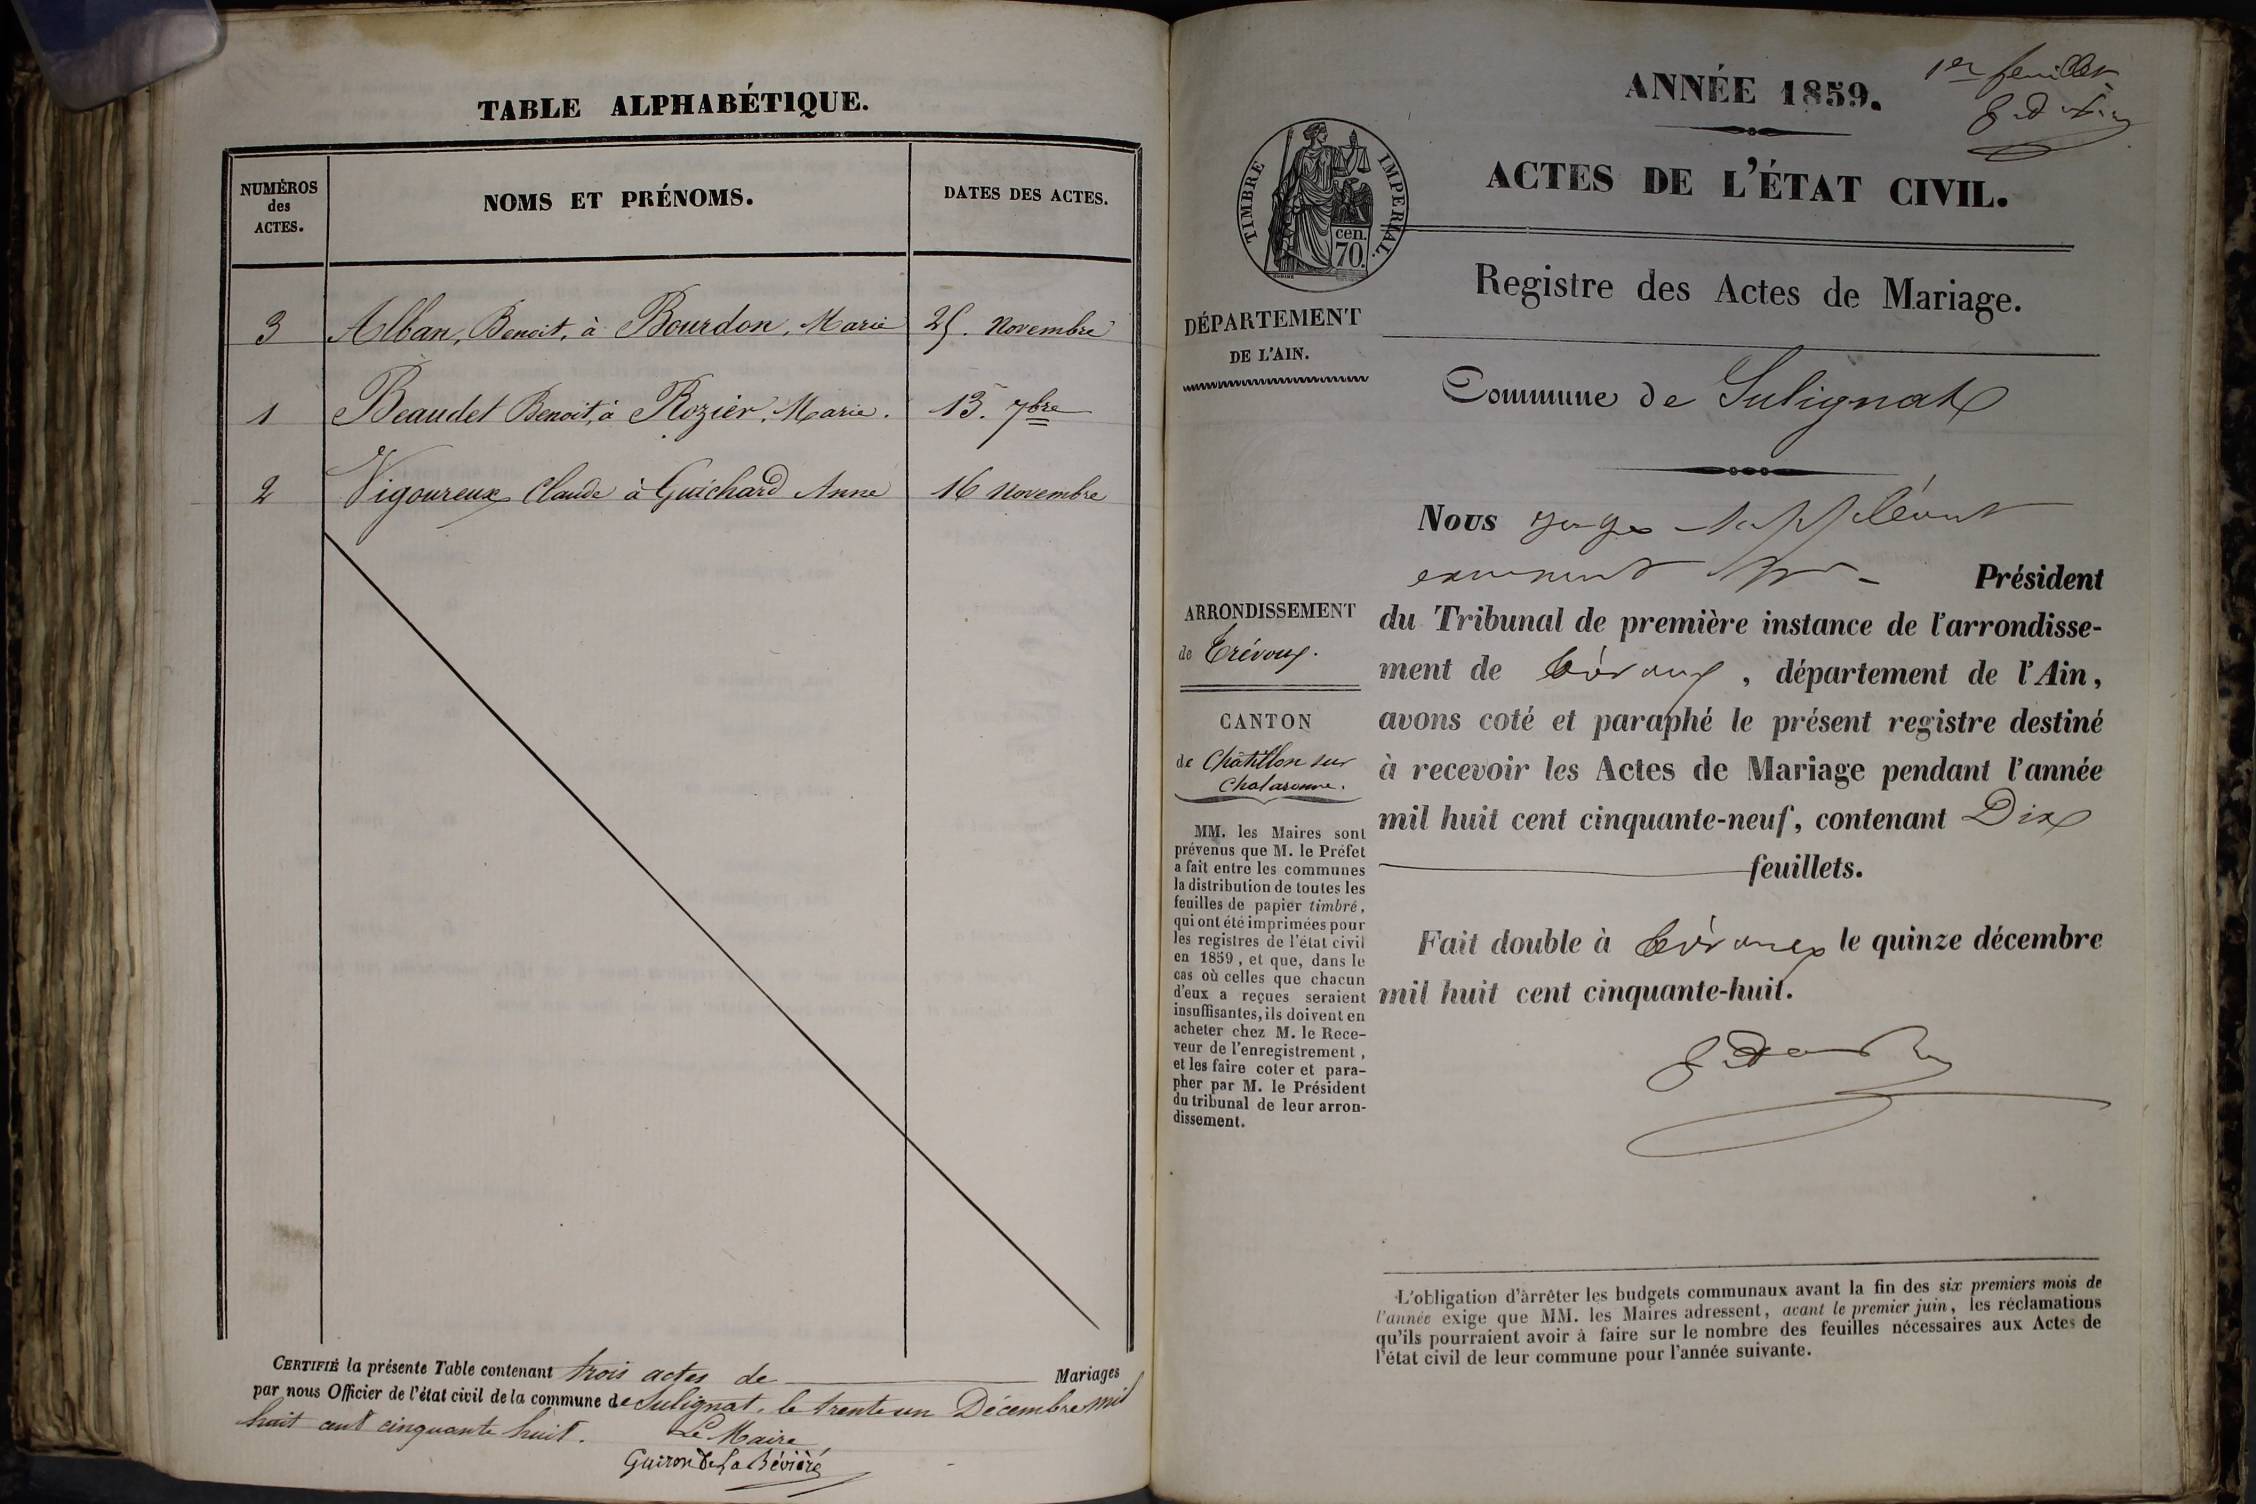 TABLE ALPHABÉTIQUE.
NUMÉROS
des
ACTES.
NOMS ET PRÉNOMS.
DATES DES ACTES.
3 Alban, Benoit, à Bourdon, Marie 25. Novembre
1 Beaudet Benoit, à Rozier, Marie. 13. 7bre
2 Vigoureux Claude à Guichard Anne 16 Novembre
CERTIFIÉ la présente Table contenant trois actes de Mariages
par nous Officier de l'état civil de la commune de Sulignat, le trente un Décembre mil
huit cent cinquante huit.
Le Maire
Guiron De La Bévière
1er feuillet
ANNÉE 1859.
ACTES DE L'ÉTAT CIVIL.
TIMBRE IMPERIAL.
cen.
70.
Registre des Actes de Mariage.
DÉPARTEMENT
DE L'AIN.
Commune de Sulignat
ARRONDISSEMENT
de Trévoux.
CANTON
de Châtillon sur
Chalaronne.
MM. les Maires sont
prévenus que M. le Préfet
a fait entre les communes
la distribution de toutes les
feuilles de papier timbré,
qui ont été imprimées pour
les registres de l'état civil
en 1859, et que, dans le
cas où celles que chacun
d'eux a reçues seraient
insuffisantes, ils doivent en
acheter chez M. le Rece-
veur de l'enregistrement,
et les faire coter et para-
pher par M. le Président
du tribunal de leur arron-
dissement.
Nous juge suppléant
Président
du Tribunal de première instance de l'arrondisse-
ment de Trévoux, département de l'Ain,
avons coté et paraphé le présent registre destiné
à recevoir les Actes de Mariage pendant l'année
mil huit cent cinquante-neuf, contenant Dix
feuillets.
Fait double à Trévoux le quinze décembre
mil huit cent cinquante-huit.
L'obligation d'àrrêter les budgets communaux avant la fin des six premiers mois de
l'année exige que MM. les Maires adressent, avant le premier juin, les réclamations
qu'ils pourraient avoir à faire sur le nombre des feuilles nécessaires aux Actes de
l'état civil de leur commune pour l'année suivante.